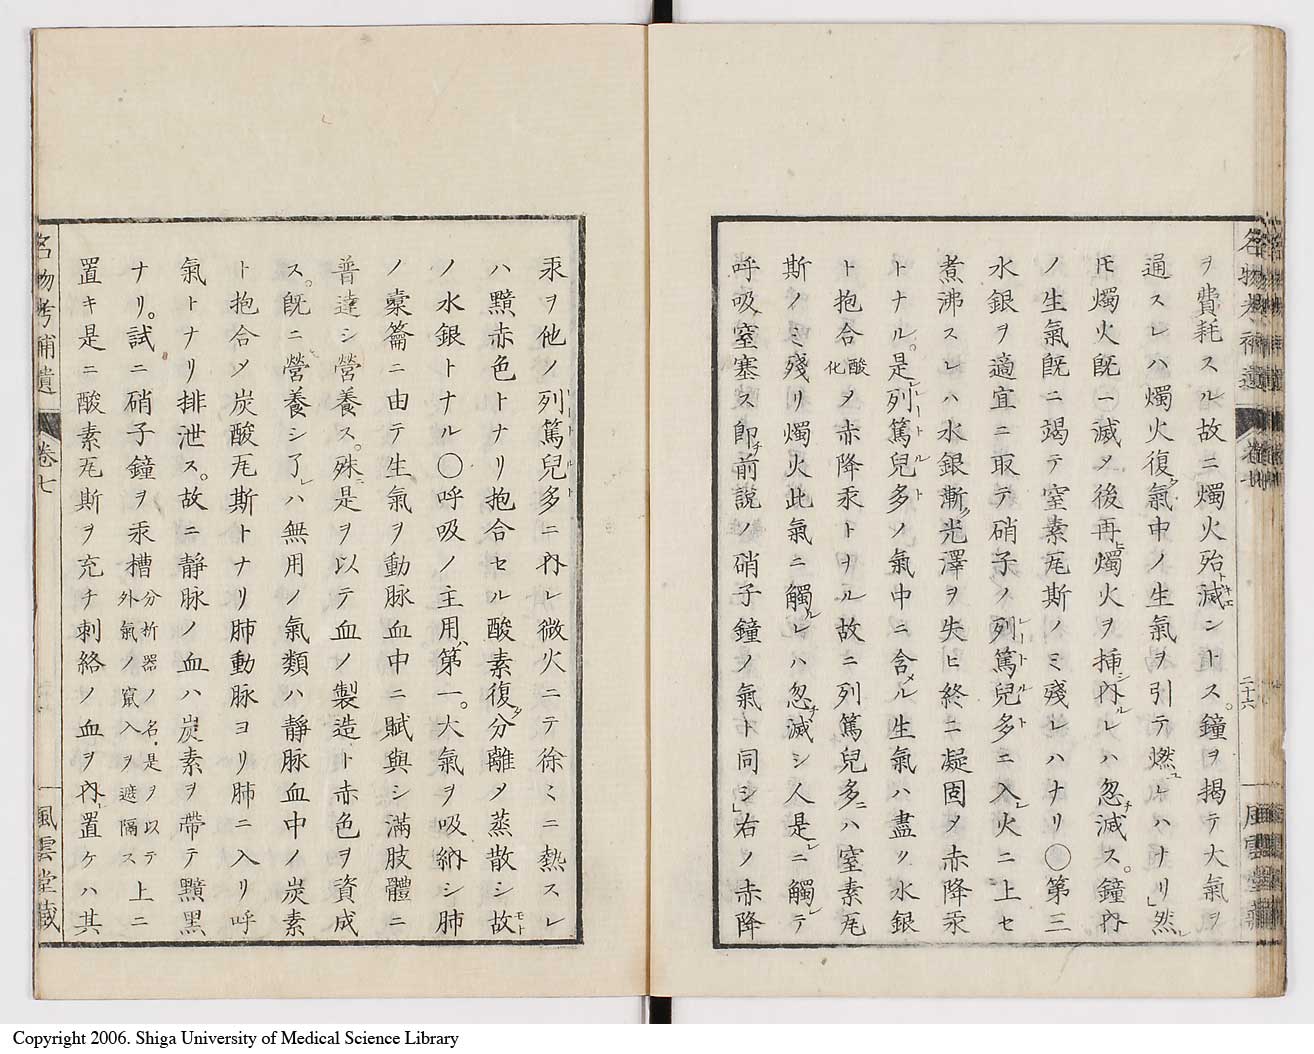 ヲ費耗スル故ニ燭火殆滅ントス。鐘ヲ掲テ大氣ヲ
通スレハ燭火復氣中ノ生氣ヲ引テ燃レハナリ」然
𪜈燭火既ニ滅メ後再燭火ヲ挿內レハ忽滅ス。鐘內
ノ生氣既ニ竭テ窒素瓦斯ノミ殘レハナリ〇第三
水銀ヲ適宜ニ取テ硝子ノ列篤兒多ニ入火ニ上セ
煮沸スレハ水銀漸光澤ヲ失ヒ終ニ凝固メ赤降汞
トナル。是列篤兒多ノ氣中ニ含ル生氣ハ盡ク水銀
ト抱合酸化メ赤降汞トナル故ニ列篤兒多ニハ窒素瓦
斯ノミ殘リ燭火此氣ニ觸レハ忽滅シ人是ニ觸テ
呼吸窒塞ス即前說ノ硝子鐘ノ氣ト同シ」右ノ赤降
名物考補遺 卷七 二十六 風雲堂藏
汞ヲ他ノ列篤兒多ニ內レ微火ニテ徐〻ニ熱スレ
ハ黯赤色トナリ抱合セル酸素復分離メ蒸散シ故
ノ水銀トナル〇呼吸ノ主用第一。大氣ヲ吸納シ肺
ノ橐籥ニ由テ生氣ヲ動脈血中ニ賦與シ滿肢體ニ
普達シ營養ス。殊ニ是ヲ以テ血ノ製造ト赤色ヲ資成
ス。既ニ營養シ了レハ無用ノ氣類ハ靜脈血中ノ炭素
ト抱合メ炭酸瓦斯トナリ肺動脈ヨリ肺ニ入リ呼
氣トナリ排泄ス。故ニ靜脈ノ血ハ炭素ヲ帶テ黯黑
ナリ。試ニ硝子鐘ヲ汞槽分析器ノ名是ヲ以テ外氣ノ竄入ヲ遮隔ス上ニ
置キ是ニ酸素瓦斯ヲ充チ刺絡ノ血ヲ內置ケハ其
名物考補遺 卷七 風雲堂藏
Copyright 2006. Shiga University of Medical Science Library